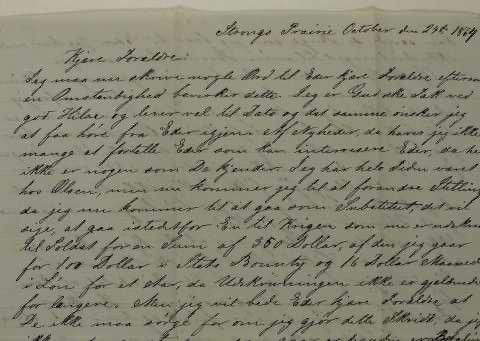 Strongs Prairie October den 24de 1864
Kjære Forældre!
Jeg maa nu skrive nogle Ord til Eder kjære Forældre eftersom
en Omstændighed bevirker dette. Jeg er Gud ske Tak ved
god Hilse og lever vel til Dato og det samme ønsker jeg
at faa høre fra Eder igjen. Af Nyheder, da haves jeg ikke
mange at fortælle Eder som kan interessere Eder, da her
ikke er nogen som De kjender. Jeg har hele Tiden været
hos Olsen, men nu kommer jeg til at forandre Stilling
da jeg nu kommer til at gaa som Substitut, det vil
sige, at gaa istedetfor En til Krigen som nu er udskreven
til Soldat for en Sum af 350 Dollar, af den jeg gaar
for 100 Dollar i Stats Bounty og 16 Dollar Maaned
i Løn for et Aar, da Udskrivningen ikke er gjeldende
for længere. Men jeg vil bede Eder kjære Forældre at
De ikke maa sørge for om jeg gjør dette Skridt, da jeg
ikke